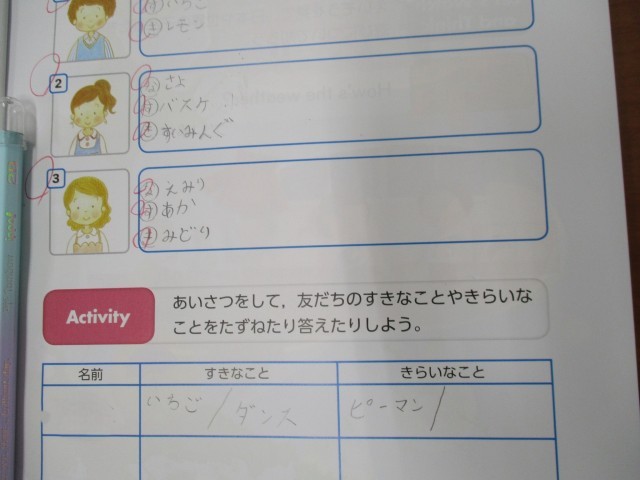 す いちご
き レモン
2
な さよ
す バスケ
き すいみんぐ
3
な えみり
す あか
き みどり
Activity
あいさつをして，友だちのすきなことやきらいな
ことをたずねたり答えたりしよう。
名前 すきなこと きらいなこと
いちご / ダンス ピーマン /